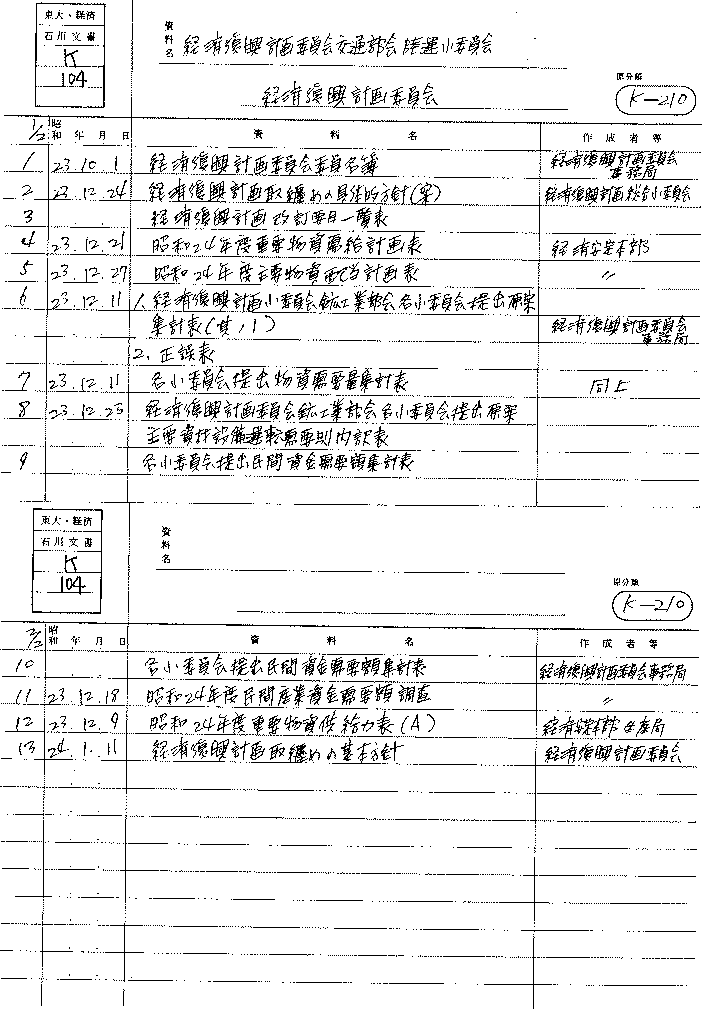 東大・経済
石川文書
K
104
資料名 経済復興計画委員会交通部会陸運小委員会
経済復興計画委員会
原分類
K-210
1/2 昭和 年 月 日 資料名 作成者等
1 23.10.1 経済復興計画委員会委員名簿 経済復興計画委員会事務局
2 23.12.24 経済復興計画取纏めの具体的方針(案) 経済復興計画総合小委員会
3 経済復興計画改訂要目一覧表
4 23.12.21 昭和24年度重要物資需給計画表 経済安定本部
5 23.12.27 昭和24年度主要物資配当計画表 〃
6 23.12.11 1.経済復興計画小委員会鉱工業部会各小委員会提出原案
集計表(其ノ1) 経済復興計画委員会事務局
2.正誤表
7 23.12.11 各小委員会提出物資需要量集計表 同上
8 23.12.25 経済復興計画委員会鉱工業部会各小委員会提出原案
主要資材設備運転需要別内訳表
9 各小委員会提出民間資金需要額集計表
東大・経済
石川文書
K
104
資料名
原分類
K-210
2/2 昭和 年 月 日 資料名 作成者等
10 各小委員会提出民間資金需要額集計表 経済復興計画委員会事務局
11 23.12.18 昭和24年度民間産業資金需要額調査 〃
12 23.12.9 昭和24年度重要物資供給力表(A) 経済安定本部生産局
13 24.1.11 経済復興計画取纏めの基本方針 経済復興計画委員会